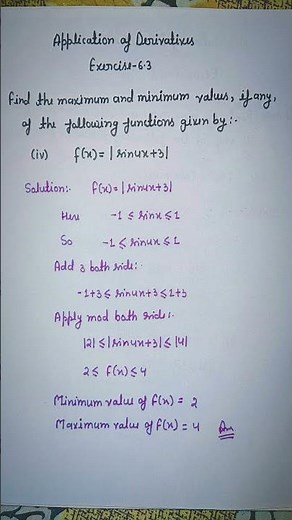 Application of Derivatives
Exercise-6.3
Find the maximum and minimum values, if any,
of the following functions given by:-
(iv) f(x)= |sin4x+3|
Solution:- f(x)= |sin4x+3|
Here -1 ≤ sinx ≤ 1
So -1 ≤ sin4x ≤ 1
Add 3 both side:-
-1+3 ≤ sin4x+3 ≤ 1+3
Apply mod both side:-
|2| ≤ |sin4x+3| ≤ |4|
2 ≤ f(x) ≤ 4
Minimum value of f(x) = 2
Maximum value of f(x) = 4 Ans